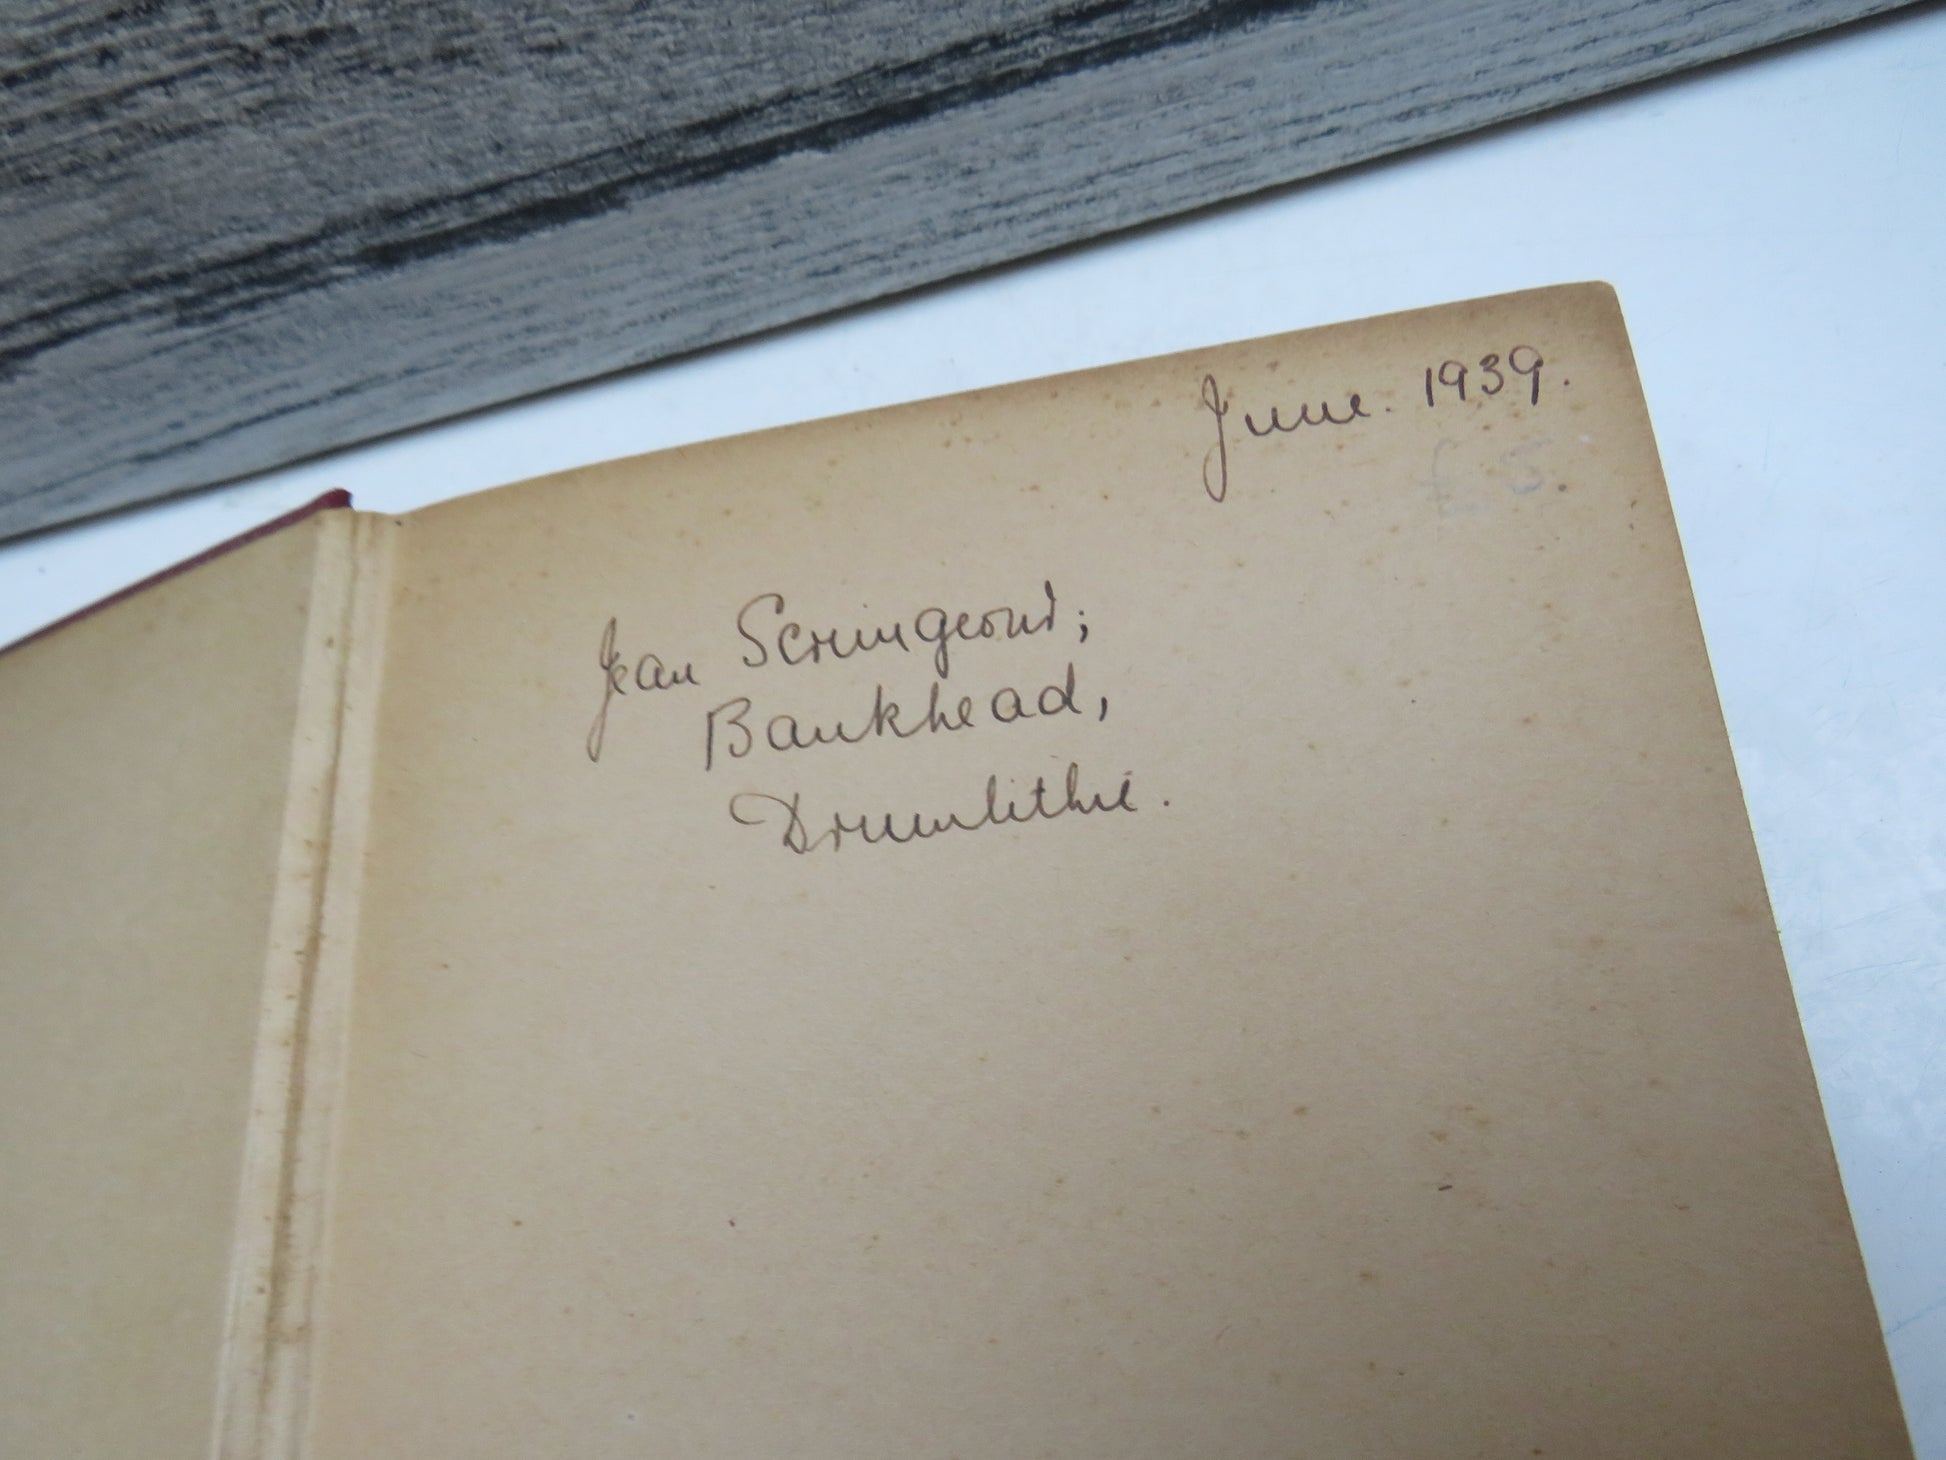 June. 1939.
£ 2.
Jean Scrimgeour;
Bankhead,
Drumlithie.